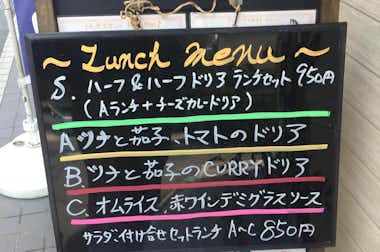 ~ Lunch menu ~
S. ハーフ&ハーフドリアランチセット 950円
(Aランチ+チーズカレードリア)
A ツナと茄子、トマトのドリア
B. ツナと茄子のCURRYドリア
C. オムライス、赤ワインデミグラスソース
サラダ、付け合せセットランチ A〜C 850円